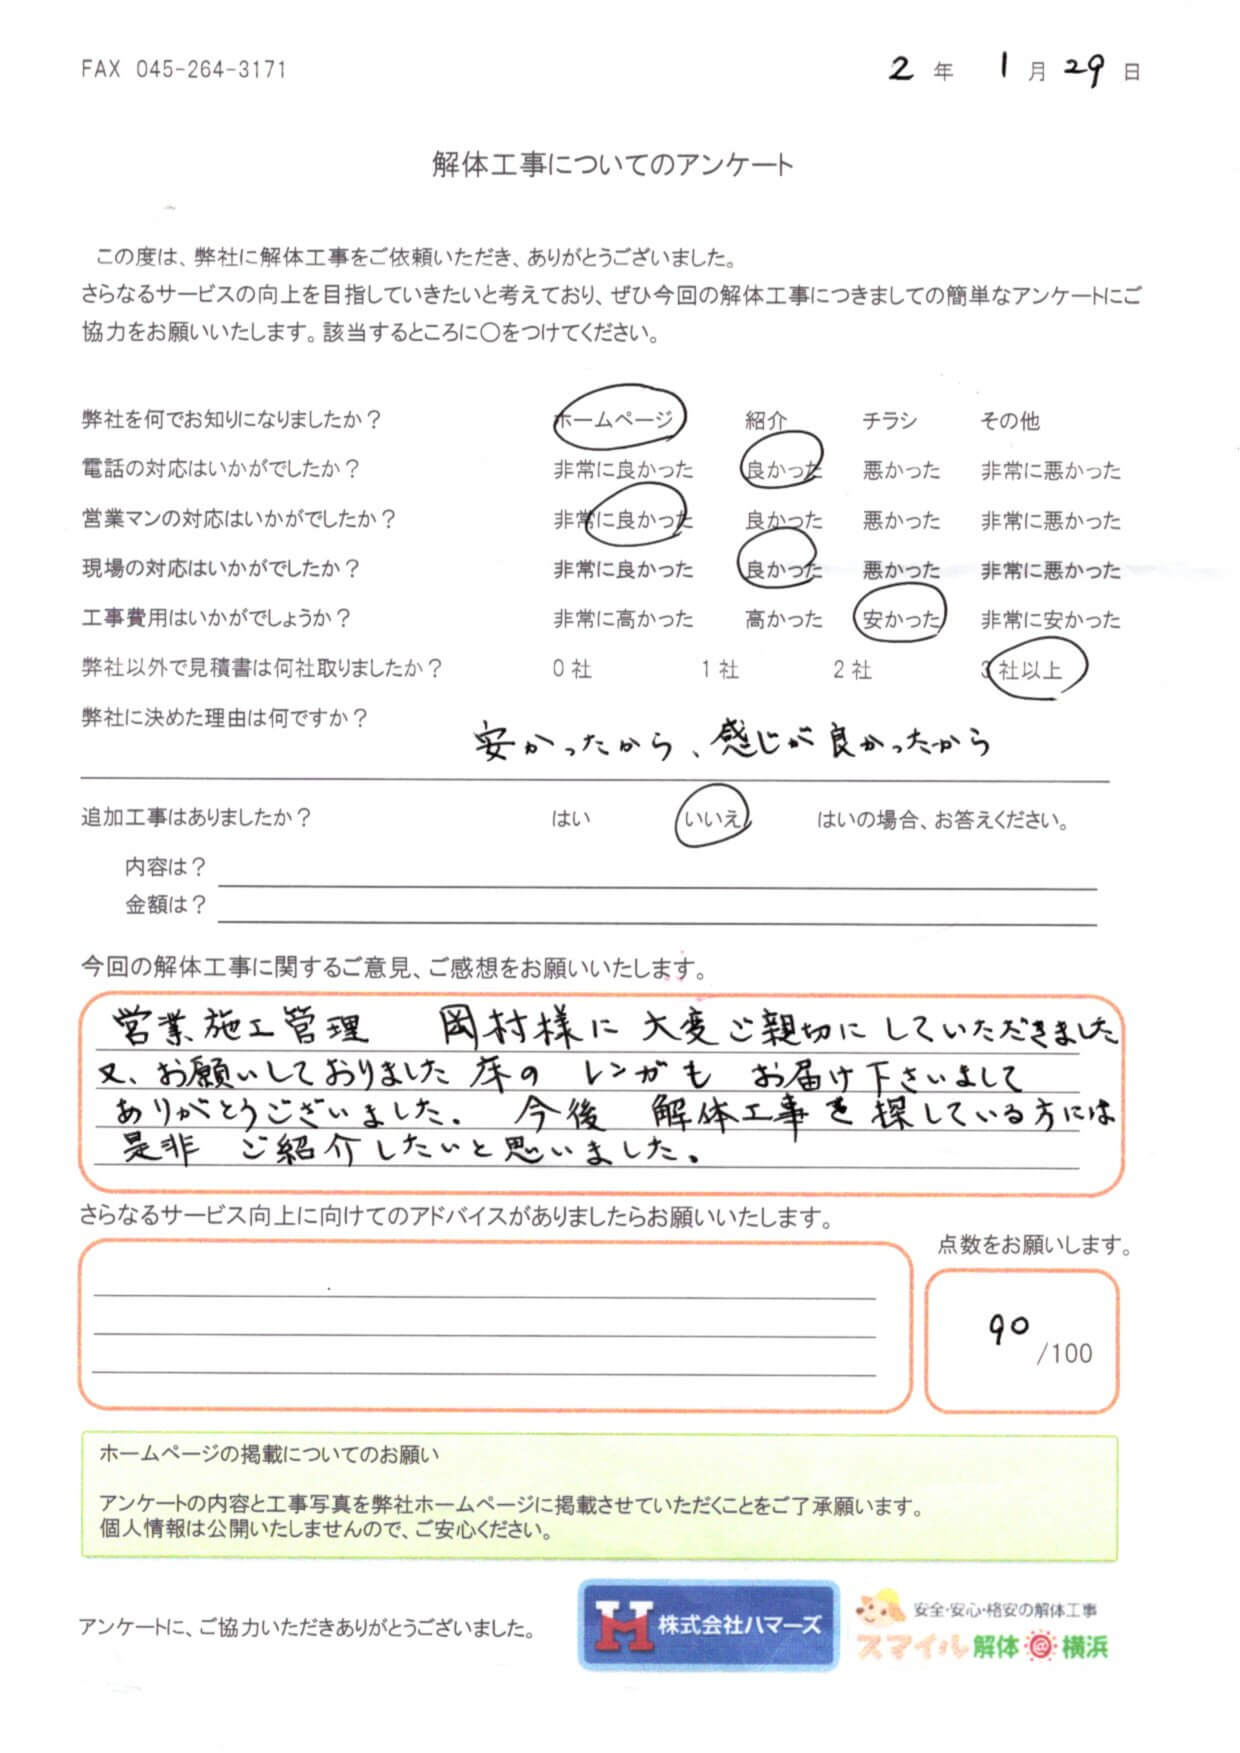 FAX 045-264-3171
2 年 1 月 29 日
解体工事についてのアンケート
この度は、弊社に解体工事をご依頼いただき、ありがとうございました。
さらなるサービスの向上を目指していきたいと考えており、ぜひ今回の解体工事につきましての簡単なアンケートにご
協力をお願いいたします。該当するところに〇をつけてください。
弊社を何でお知りになりましたか？ ホームページ 紹介 チラシ その他
電話の対応はいかがでしたか？ 非常に良かった 良かった 悪かった 非常に悪かった
営業マンの対応はいかがでしたか？ 非常に良かった 良かった 悪かった 非常に悪かった
現場の対応はいかがでしたか？ 非常に良かった 良かった 悪かった 非常に悪かった
工事費用はいかがでしょうか？ 非常に高かった 高かった 安かった 非常に安かった
弊社以外で見積書は何社取りましたか？ 0 社 1 社 2 社 3 社以上
弊社に決めた理由は何ですか？
安かったから、感じが良かったから
追加工事はありましたか？ はい いいえ はいの場合、お答えください。
内容は？
金額は？
今回の解体工事に関するご意見、ご感想をお願いいたします。
営業、施工管理 岡村様に 大変ご親切に していただきました
又、お願いしておりました 床の レンガも お届け下さいまして
ありがとうございました。 今後 解体工事を探している方には
是非 ご紹介したいと思いました。
さらなるサービス向上に向けてのアドバイスがありましたらお願いいたします。
点数をお願いします。
90
/100
ホームページの掲載についてのお願い
アンケートの内容と工事写真を弊社ホームページに掲載させていただくことをご了承願います。
個人情報は公開いたしませんので、ご安心ください。
アンケートに、ご協力いただきありがとうございました。
H 株式会社ハマーズ
安全・安心・格安の解体工事
スマイル解体@横浜